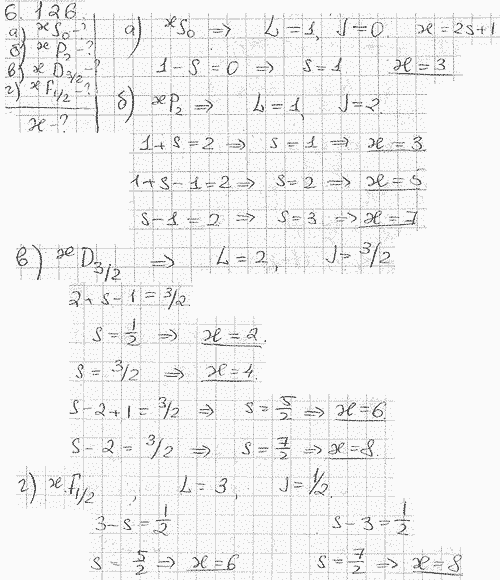 6.126.
а) ϰS₀ -?
б) ϰP₂ -?
в) ϰD₃/₂ -?
г) ϰF₁/₂ -?
ϰ-?
а) ϰS₀ ⇒ L=1, J=0 ϰ=2S+1
1-S=0 ⇒ S=1 ϰ=3
б) ϰP₂ ⇒ L=1, J=2
1+S=2 ⇒ S=1 ⇒ ϰ=3
1+S-1=2 ⇒ S=2 ⇒ ϰ=5
S-1=2 ⇒ S=3 ⇒ ϰ=7
в) ϰD₃/₂ ⇒ L=2, J=3/2
2+S-1=3/2
S=1/2 ⇒ ϰ=2.
S=3/2 ⇒ ϰ=4.
S-2+1=3/2 ⇒ S=5/2 ⇒ ϰ=6
S-2=3/2 ⇒ S=7/2 ⇒ ϰ=8.
г) ϰF₁/₂, L=3, J=1/2.
3-S=1/2 S-3=1/2
S=5/2 ⇒ ϰ=6 S=7/2 ⇒ ϰ=8